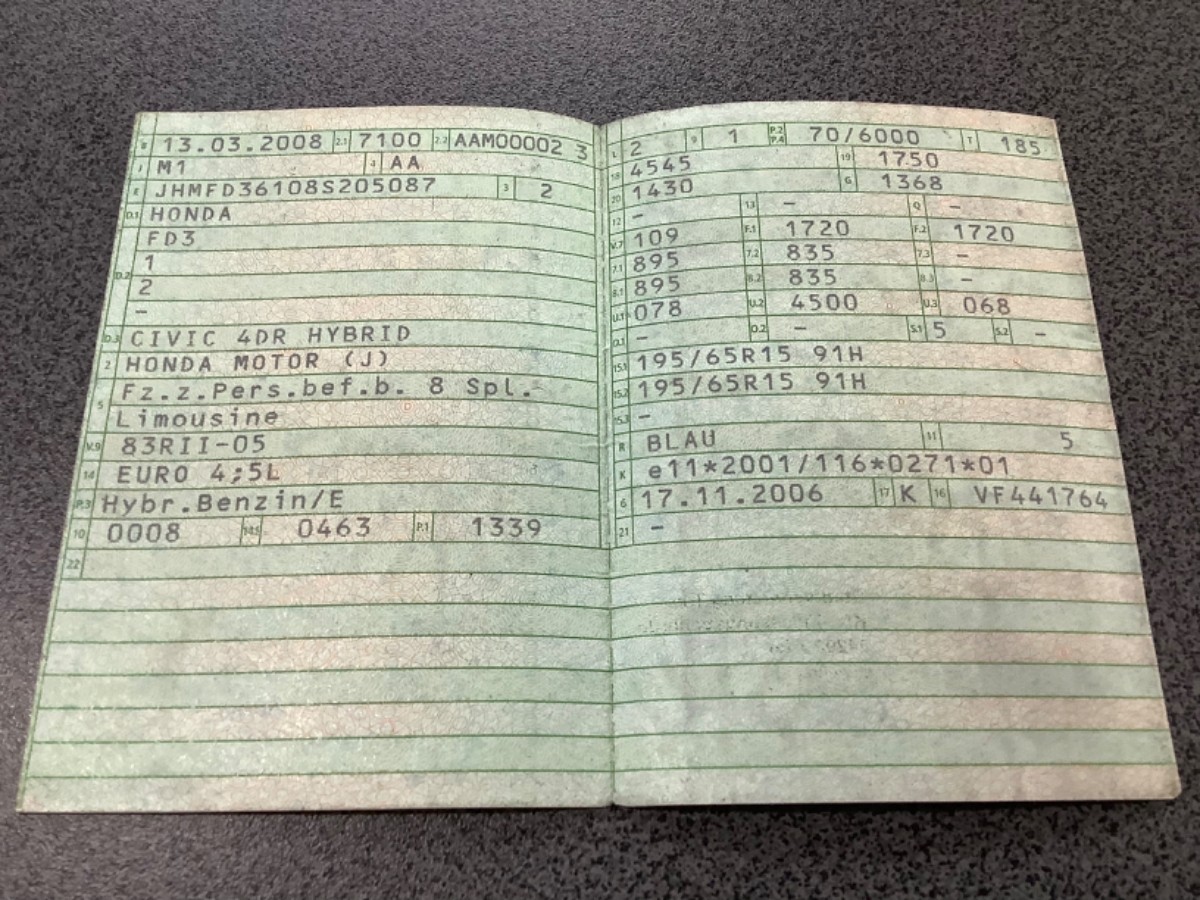 B 13.03.2008 2.1 7100 2.2 AAM00002 3
J M1 4 AA
E JHMFD36108S205087 3 2
D.1 HONDA
FD3
D.2 1
2
–
D.3 CIVIC 4DR HYBRID
2 HONDA MOTOR (J)
5 Fz.z.Pers.bef.b. 8 Spl.
Limousine
V.9 83RII-05
14 EURO 4;5L
P.3 Hybr.Benzin/E
10 0008 14.1 0463 P.1 1339
22
L 2 9 1 P.2 P.4 70/6000 T 185
18 4545 19 1750
20 1430 G 1368
12 – 13 – Q –
V.7 109 F.1 1720 F.2 1720
7.1 895 7.2 835 7.3 –
8.1 895 8.2 835 8.3 –
U.1 078 U.2 4500 U.3 068
O.1 – O.2 – S.1 5 S.2 –
15.1 195/65R15 91H
15.2 195/65R15 91H
15.3 –
R BLAU 11 5
K e11*2001/116*0271*01
6 17.11.2006 17 K 16 VF441764
21 –